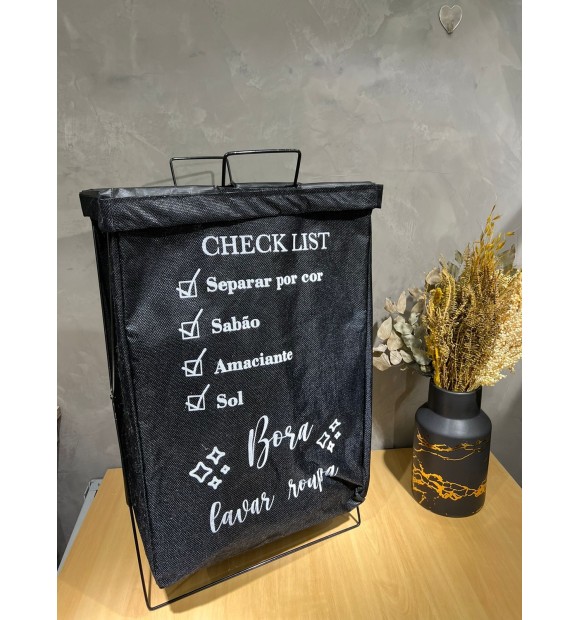 CHECK LIST
Separar por cor
Sabão
Amaciante
Sol
Bora
lavar roupa